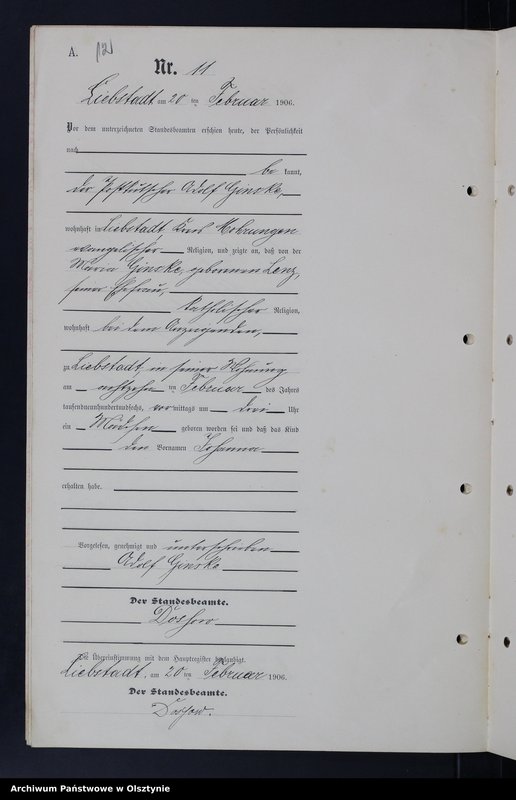 A.
Nr. 11
Liebstadt am 20 ten Februar 1906.
Vor dem unterzeichneten Standesbeamten erschien heute, der Persönlichkeit
nach
be kannt,
der Adolf Ginske
wohnhaft in Liebstadt Kreis Mohrungen
evangelischer Religion, und zeigte an, daß von der
Maria Ginske, geborenen Lenz,
seiner Ehefrau,
katholischer Religion,
wohnhaft bei dem Anzeigenden,
zu Liebstadt in seiner Wohnung
am achtzehn ten Februar des Jahres
tausendneunhundertundsechs, vor mittags um drei Uhr
ein Mädchen geboren worden sei und daß das Kind
den Vornamen Johanna
erhalten habe.
Vorgelesen, genehmigt und unterschrieben
Adolf Ginske
Der Standesbeamte.
Die Übereinstimmung mit dem Hauptregister beglaubigt.
Liebstadt, am 20 ten Februar 1906.
Der Standesbeamte.
Archiwum Państwowe w Olsztynie